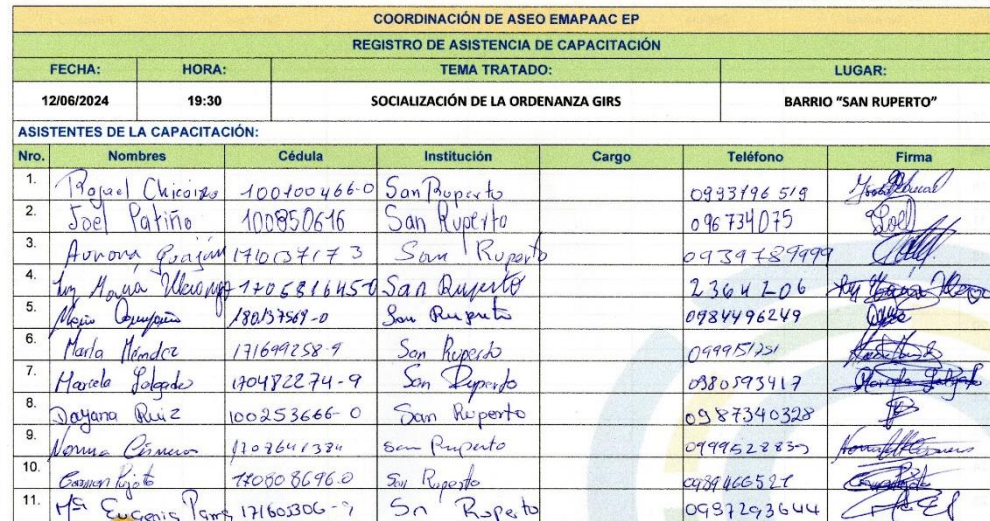 COORDINACIÓN DE ASEO EMAPAAC EP
REGISTRO DE ASISTENCIA DE CAPACITACIÓN
FECHA: HORA: TEMA TRATADO: LUGAR:
12/06/2024 19:30 SOCIALIZACIÓN DE LA ORDENANZA GIRS BARRIO "SAN RUPERTO"
ASISTENTES DE LA CAPACITACIÓN:
Nro. Nombres Cédula Institución Cargo Teléfono Firma
1. 100100466-0 San Ruperto 0993196519
2. Joel Patiño 100850616 San Ruperto 096734075 Joel
3. Aurora 1710137173 San Ruperto 0939789999
4. María 170581645-0 San Ruperto 2364206
5. 180137569-0 San Ruperto 0984496249
6. Marla Méndez 171699258-9 San Ruperto
7. Marcela Salgado 170482274-9 San Ruperto 0980593417 Marcela Salgado
8. Dayana Ruiz 100253666-0 San Ruperto 0987340328
9. Norma Cisneros San Ruperto
10. Carmen 170808696-0 San Ruperto 0989466521
11. Mª Eugenia Sn Ruperto 0997293644